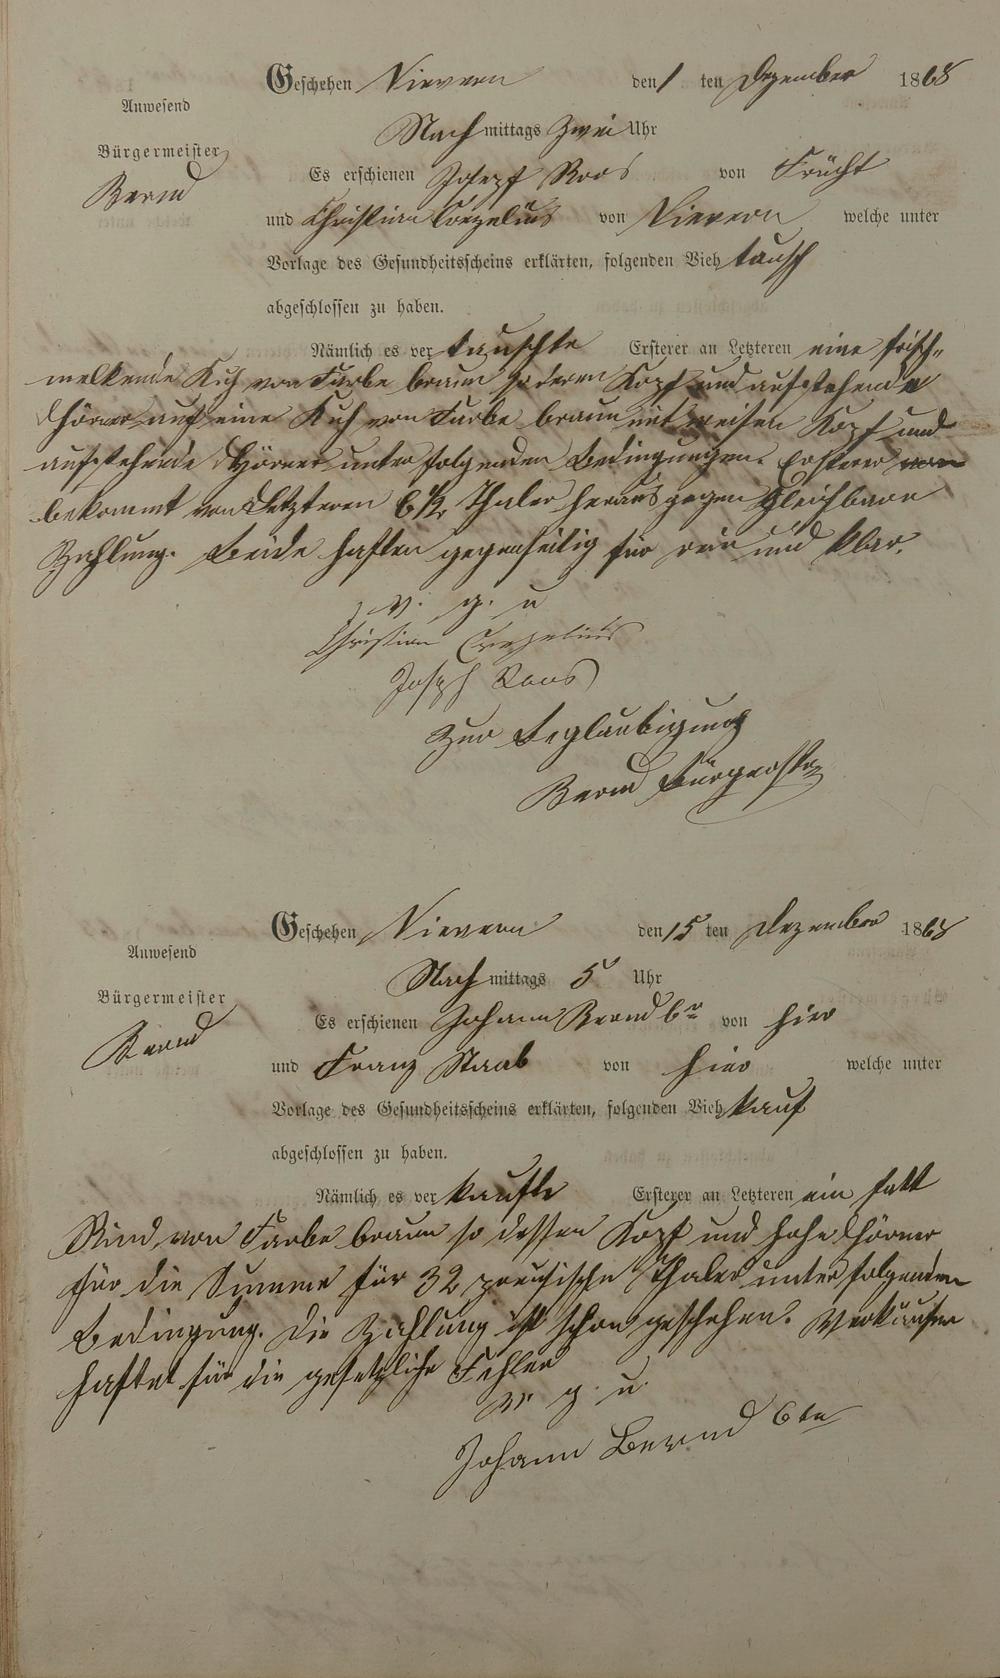 Geschehen Nievern den 1 ten Dezember 1868
Anwesend
Nachmittags Zwei Uhr
Bürgermeister
Bernd
Es erschienen Joseph Roos von Frücht
und Christian Corzelius von Nievern welche unter
Vorlage des Gesundheitsscheins erklärten, folgenden Viehtausch
abgeschlossen zu haben.
Nämlich es vertauschte Ersterer an Letzteren eine frisch-
melkende Kuh von Farbe braun so deren Kopf und aufstehende
Hörner auf eine Kuh von Farbe braun mit weisen Kopf und
aufstehende Hörner unter folgenden Bedingungen. Ersterer
bekommt von Letzteren 6½ Thaler heraus gegen Gleichbare
Zahlung. Beide haften gegenseitig für rein und klar.
v. g. u
Christian Corzelius
Joseph Roos
Zur Beglaubigung
Bernd Bürgerstr
Geschehen Nievern den 15 ten Dezember 1868
Anwesend
Nachmittags 5 Uhr
Bürgermeister
Bernd
Es erschienen Johann Bernd 6r von hier
und Franz Staab von hier welche unter
Vorlage des Gesundheitsscheins erklärten, folgenden Viehkauf
abgeschlossen zu haben.
Nämlich es verkaufte Ersterer an Letzteren ein fett
Rind von Farbe braun so dessen Kopf und hohe Hörner
für die Summe für 32 preusische Thaler unter folgenden
Bedingung. Die Zahlung ist schon geschehen. Verkäufer
haftet für die gesetzliche Fehler
v. g. u.
Johann Bernd 6ter